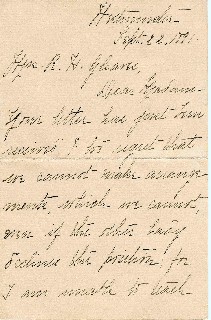 Westminster
Sept. 22, 1891.
Mrs. R. H. Gleave,
Dear Madam:-
Your letter has just been
received. I do regret that
we cannot make arrange-
ments, which we cannot,
even if the other lady
declines the position for
I am unable to teach